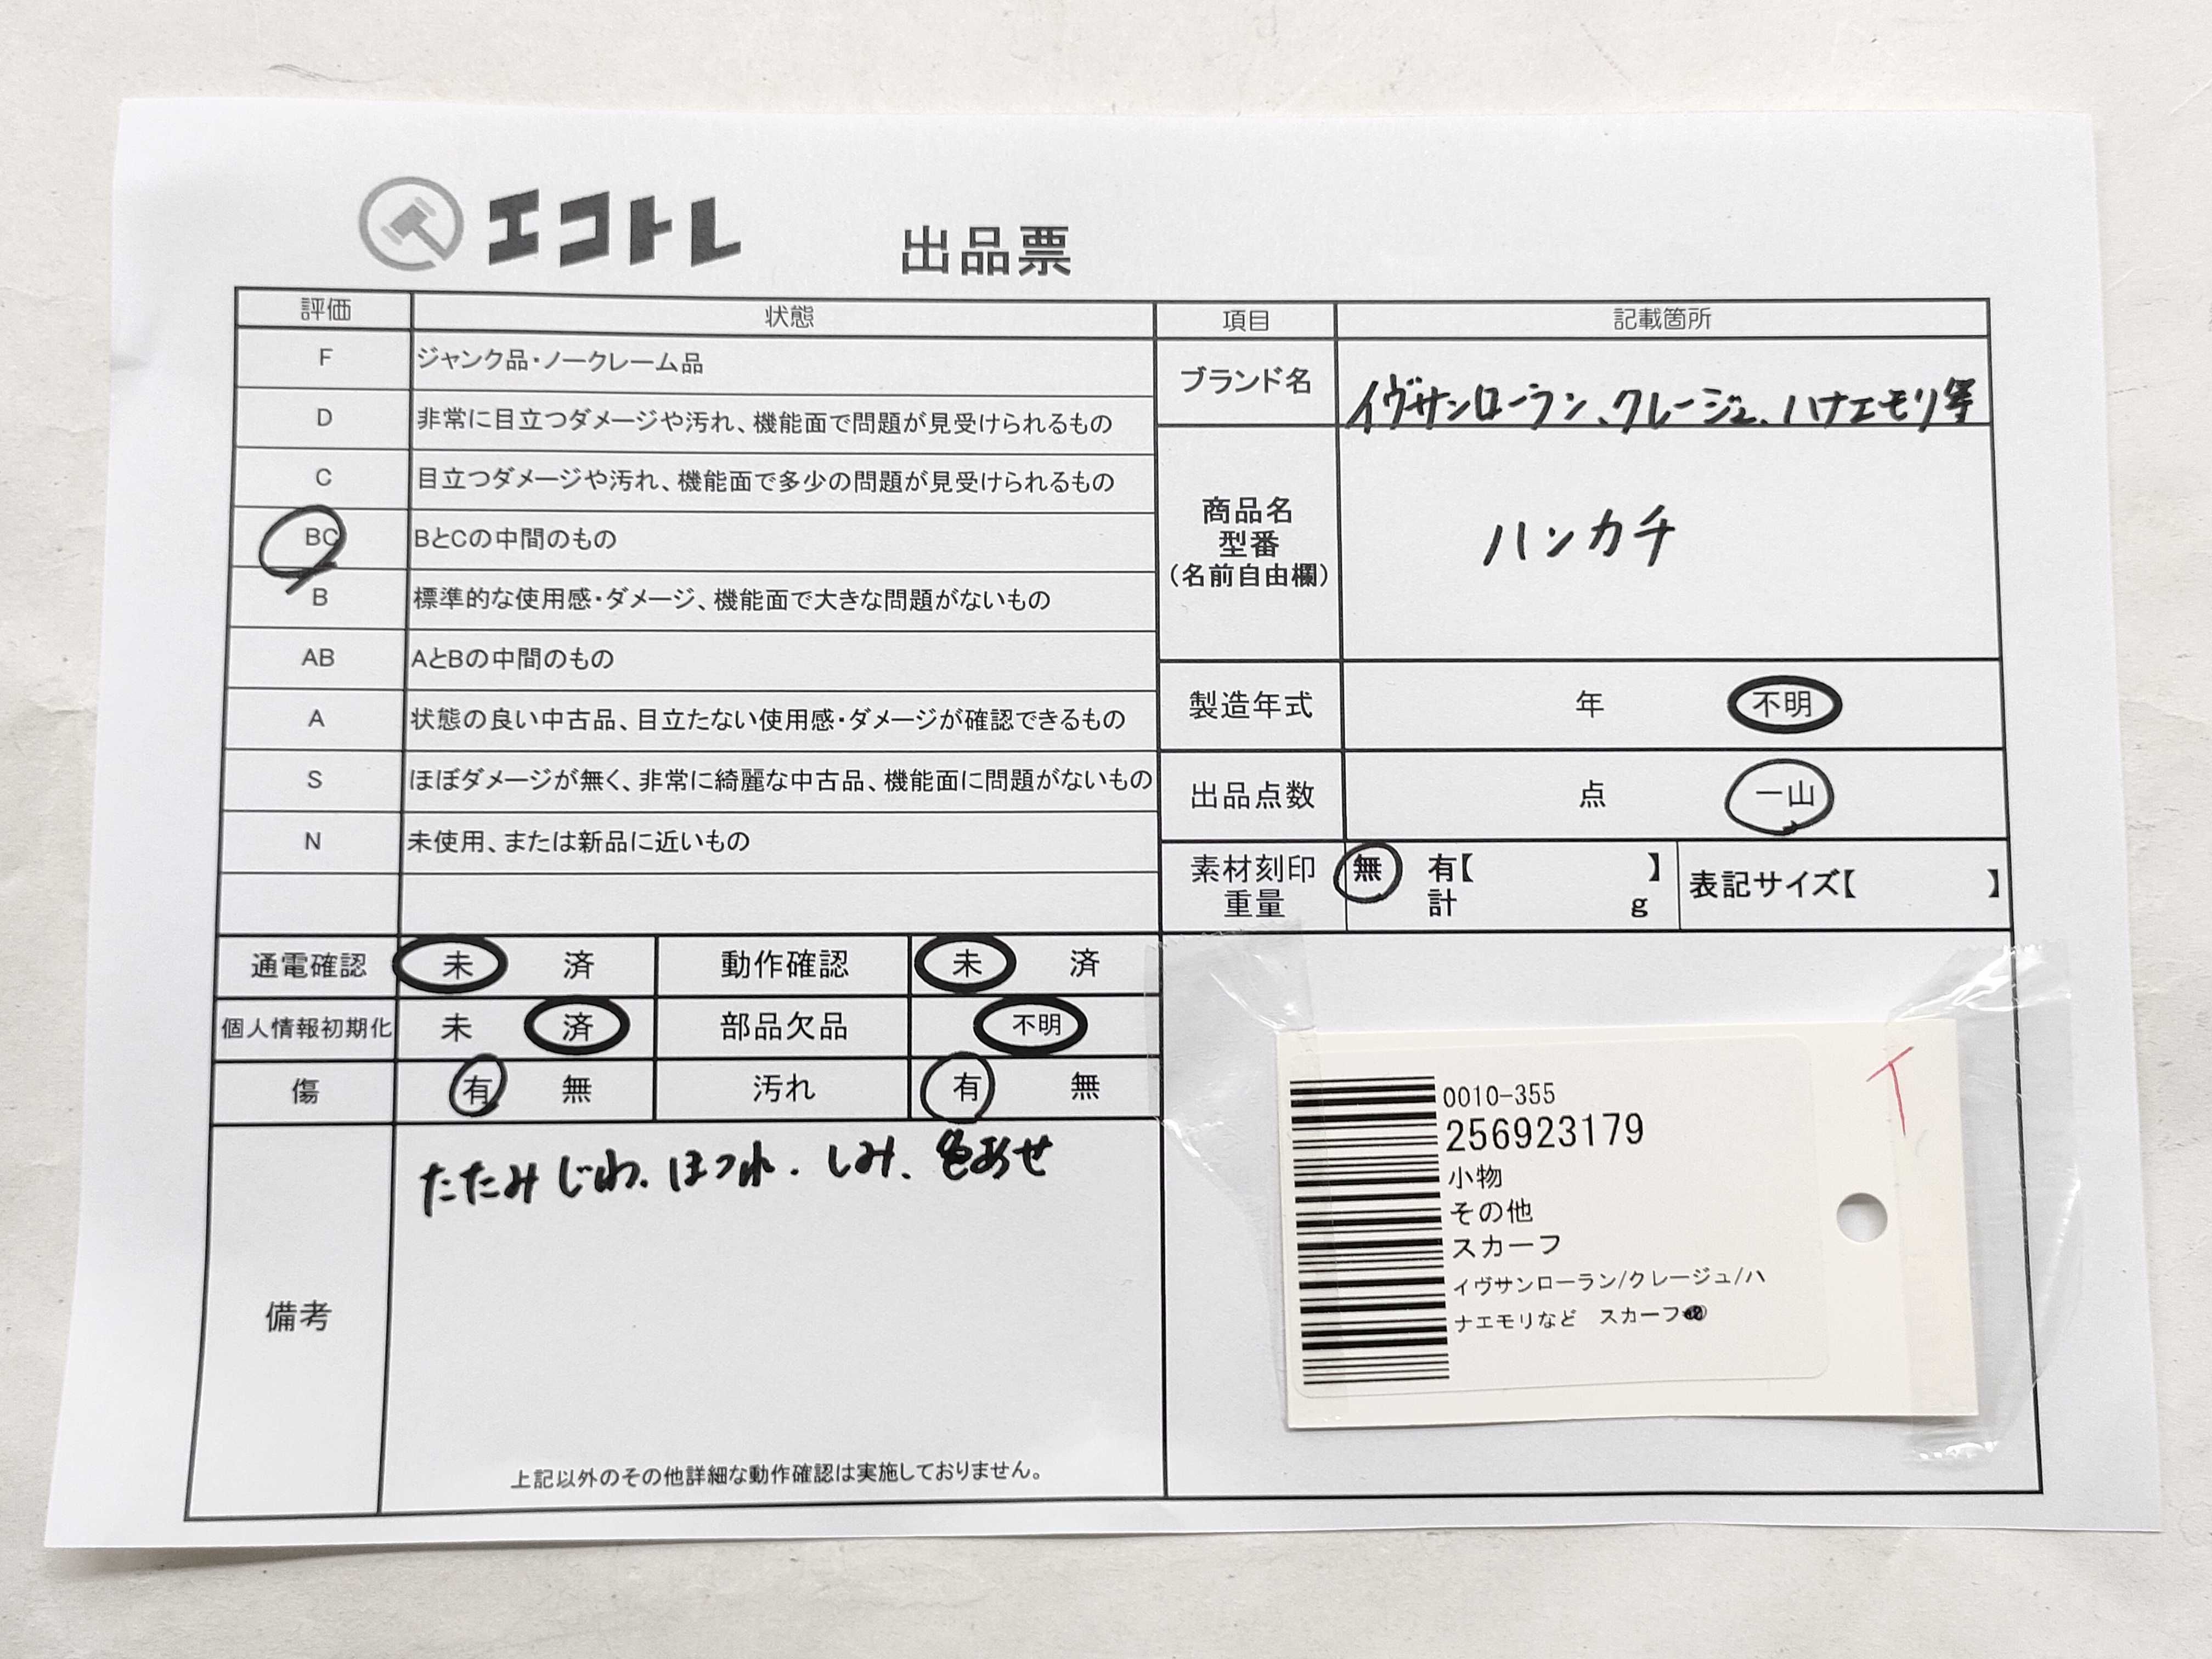 エコトレ 出品票
評価 状態
F ジャンク品・ノークレーム品
D 非常に目立つダメージや汚れ、機能面で問題が見受けられるもの
C 目立つダメージや汚れ、機能面で多少の問題が見受けられるもの
BC BとCの中間のもの
B 標準的な使用感・ダメージ、機能面で大きな問題がないもの
AB AとBの中間のもの
A 状態の良い中古品、目立たない使用感・ダメージが確認できるもの
S ほぼダメージが無く、非常に綺麗な中古品、機能面に問題がないもの
N 未使用、または新品に近いもの
項目 記載箇所
ブランド名 イヴサンローラン、クレージュ、ハナエモリ等
商品名
型番
(名前自由欄)
ハンカチ
製造年式 年 不明
出品点数 点 一山
素材刻印 無 有【 】
重量 計 g
表記サイズ【 】
通電確認 未 済 動作確認 未 済
個人情報初期化 未 済 部品欠品 不明
傷 有 無 汚れ 有 無
備考
たたみじわ、ほつれ、しみ、色あせ
上記以外のその他詳細な動作確認は実施しておりません。
T
0010-355
256923179
小物
その他
スカーフ
イヴサンローラン/クレージュ/ハ
ナエモリなど スカーフ